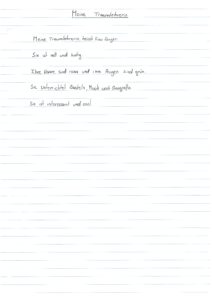 Meine Traumlehrerin
Meine Traumlehrerin heisst Frau
Sie ist nett und lustig.
Ihre Haare sind rosa und ihre Augen sind grün.
Sie unterrichtet Basteln, Musik und Geografie.
Sie ist interessant und cool.